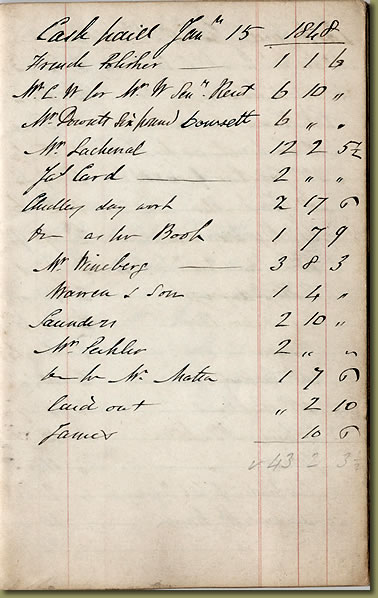 Cash paid Jany 15 1848
French Polisher — 1 1 6
Mr C. W for Mr W Senr. Rent 6 10 "
Mr Dowsett Six pound Dowsett 6 " "
Mr Lachenal 12 2 5½
Jas Card — 2 " "
Audley day work 2 17 6
Do as per Book 1 7 9
Mr Wineberg — 3 8 3
Warren & Son 1 4 "
Saunders 2 10 "
Mr 2 " "
Do Mr 1 7 6
Laid out " 2 10
James 10 6
43 2 3½